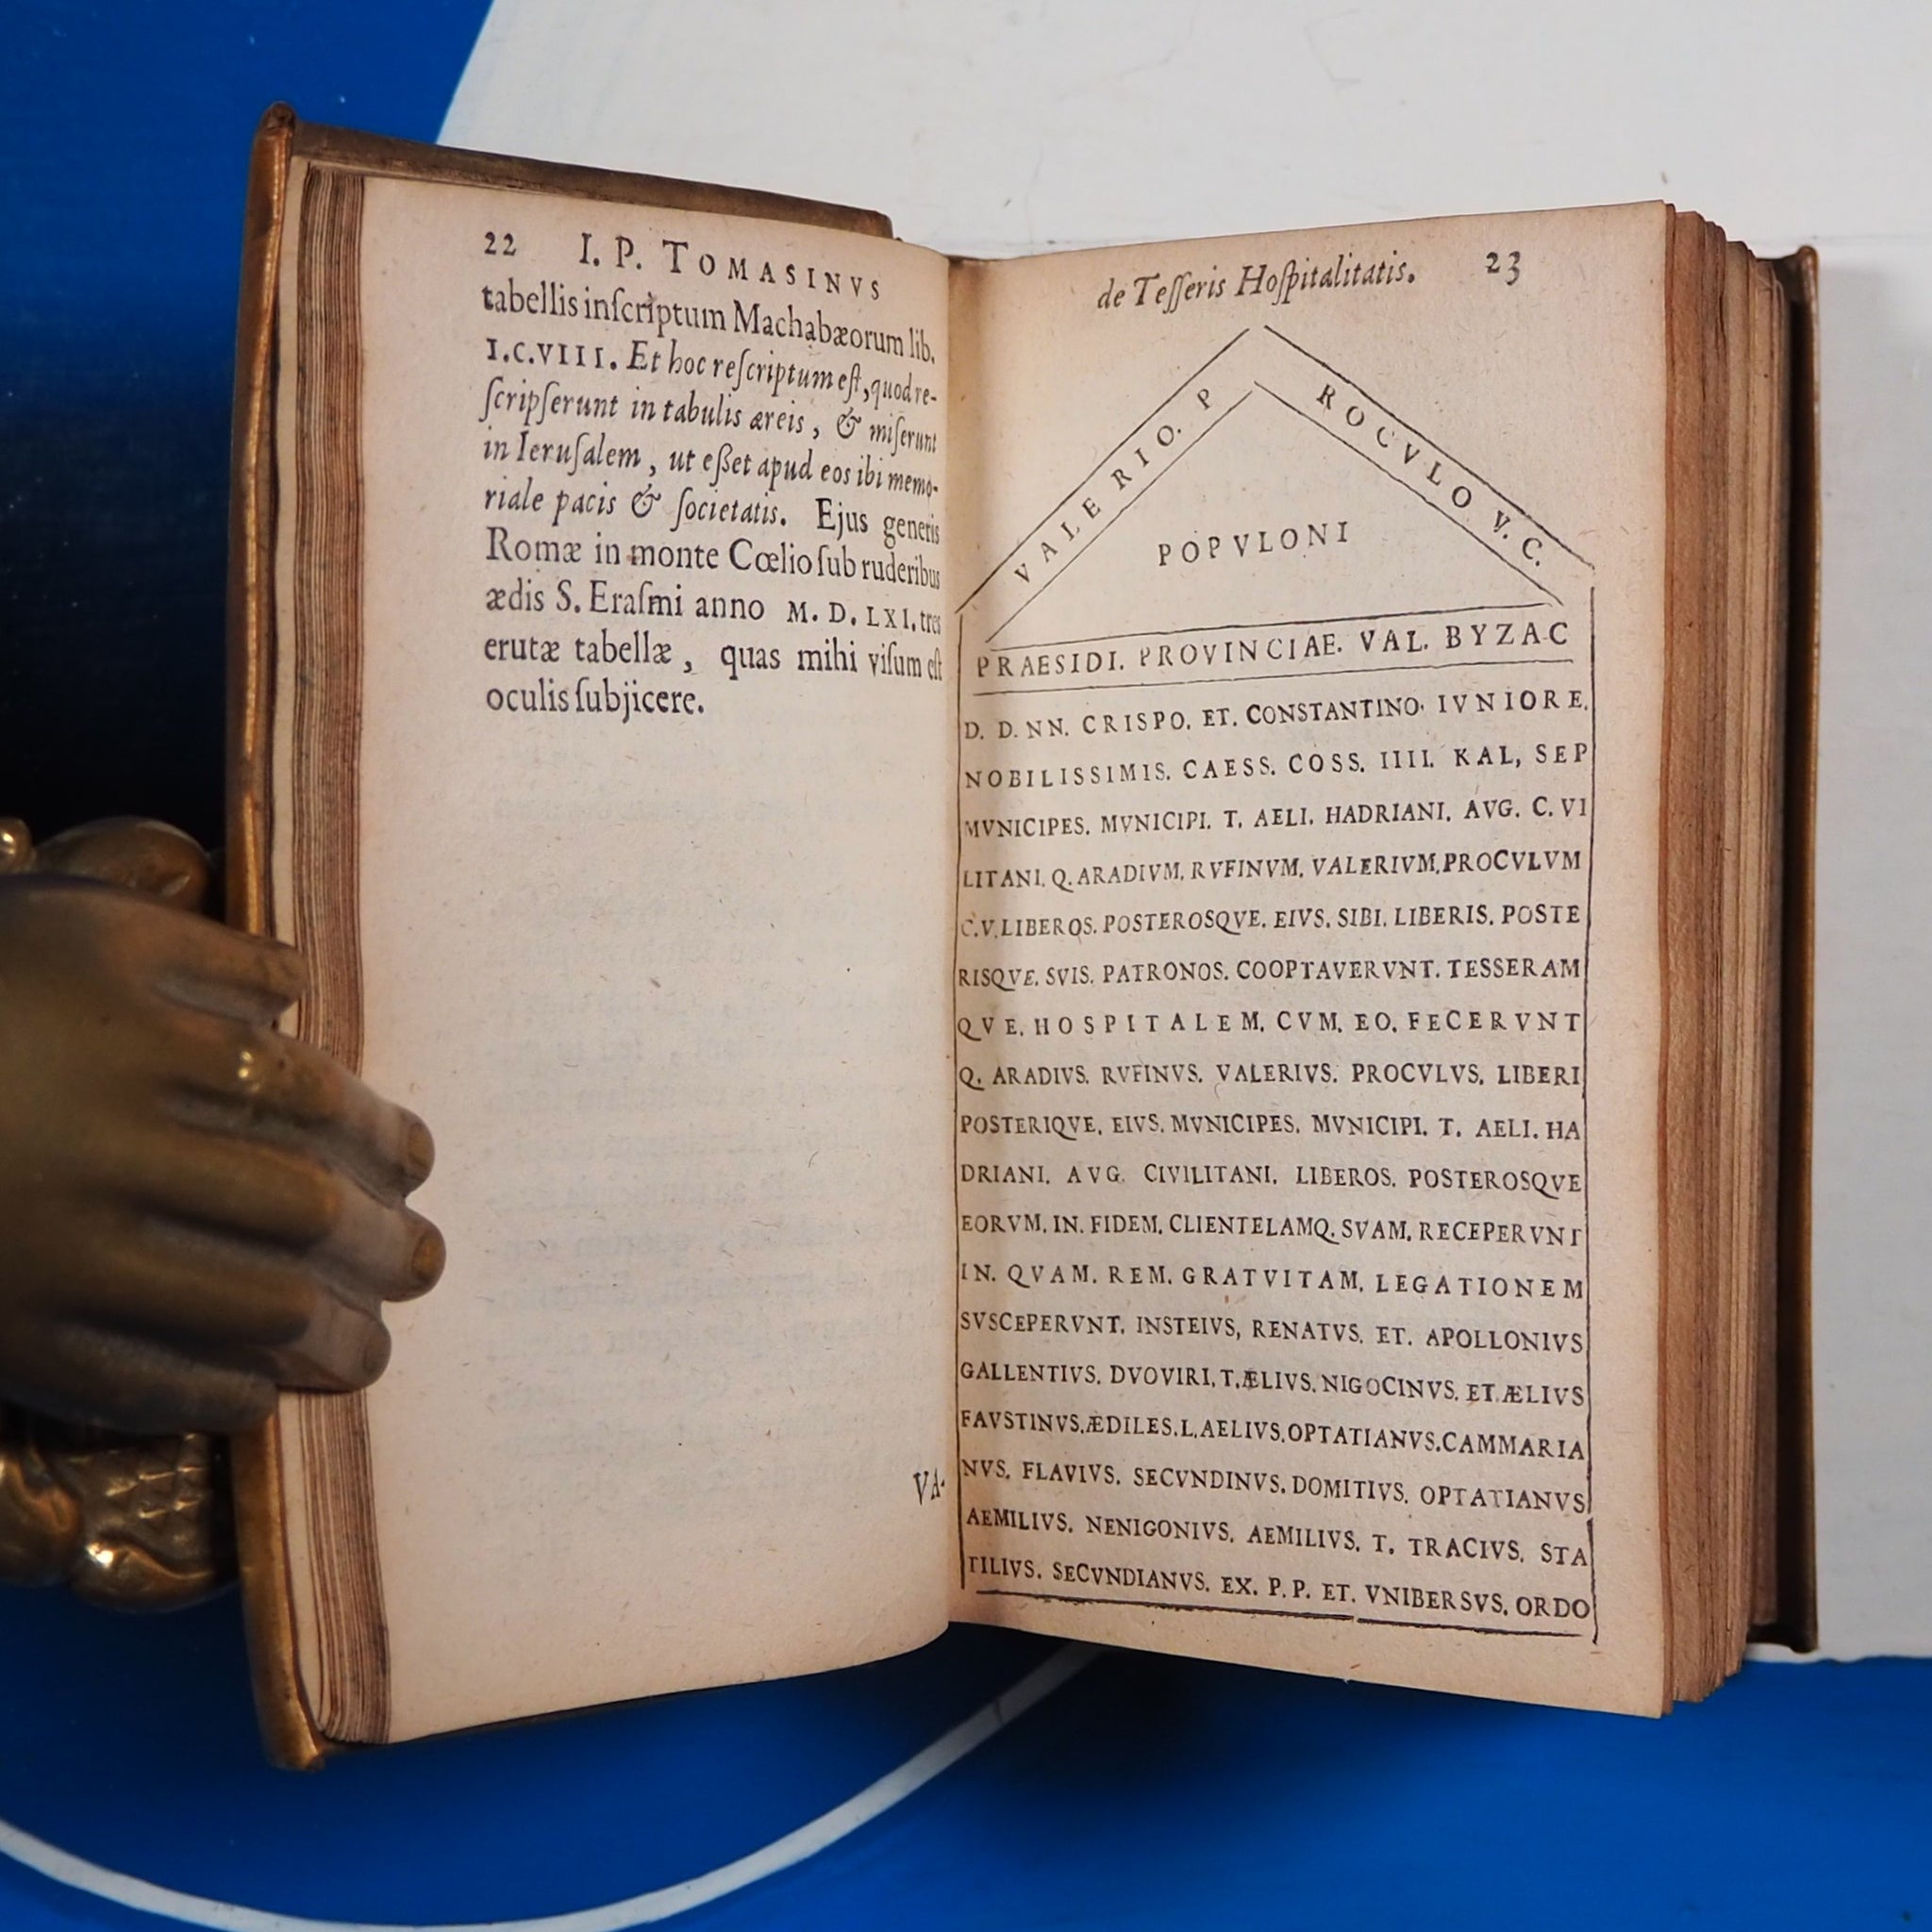 22 I. P. TOMASINVS
tabellis inſcriptum Machabæorum lib.
I.C.VIII. Et hoc reſcriptum eſt, quod re-
ſcripſerunt in tabulis æreis, & miſerunt
in Ieruſalem, ut eßet apud eos ibi memo-
riale pacis & ſocietatis. Ejus generis
Romæ in monte Cœlio ſub ruderibus
ædis S. Eraſmi anno M. D. LXI. tres
erutæ tabellæ, quas mihi viſum eſt
oculis ſubjicere.
VA-
de Teſſeris Hoſpitalitatis. 23
VALERIO. P
ROCVLO V. C.
POPVLONI
PRAESIDI. PROVINCIAE. VAL. BYZAC
D. D. NN. CRISPO. ET. CONSTANTINO. IVNIORE.
NOBILISSIMIS. CAESS. COSS. IIII. KAL, SEP
MVNICIPES. MVNICIPI. T. AELI. HADRIANI. AVG. C. VI
LITANI. Q. ARADIVM. RVFINVM. VALERIVM. PROCVLVM
C.V. LIBEROS. POSTEROSQVE. EIVS. SIBI. LIBERIS. POSTE
RISQVE. SVIS. PATRONOS. COOPTAVERVNT. TESSERAM
QVE. HOSPITALEM. CVM. EO. FECERVNT
Q. ARADIVS. RVFINVS. VALERIVS. PROCVLVS. LIBERI
POSTERIQVE. EIVS. MVNICIPES. MVNICIPI. T. AELI. HA
DRIANI. AVG. CIVILITANI. LIBEROS. POSTEROSQVE
EORVM. IN. FIDEM. CLIENTELAMQ. SVAM. RECEPERVNT
IN. QVAM. REM. GRATVITAM. LEGATIONEM
SVSCEPERVNT. INSTEIVS, RENATVS. ET. APOLLONIVS
GALLENTIVS. DVOVIRI. T. ÆLIVS. NIGOCINVS. ET. ÆLIVS
FAVSTINVS. ÆDILES. L. AELIVS. OPTATIANVS. CAMMARIA
NVS. FLAVIVS. SECVNDINVS. DOMITIVS. OPTATIANVS
AEMILIVS. NENIGONIVS. AEMILIVS. T. TRACIVS. STA
TILIVS. SECVNDIANVS. EX. P. P. ET. VNIBERSVS. ORDO